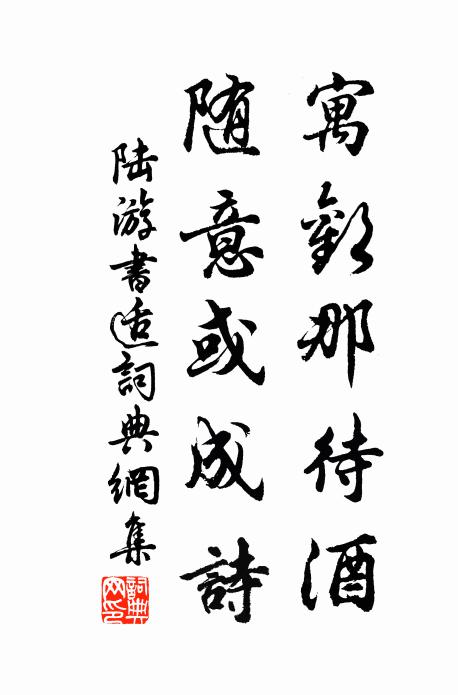 寓歡那待酒
随意或成詩
陸游書适詞典網集
詞典網印